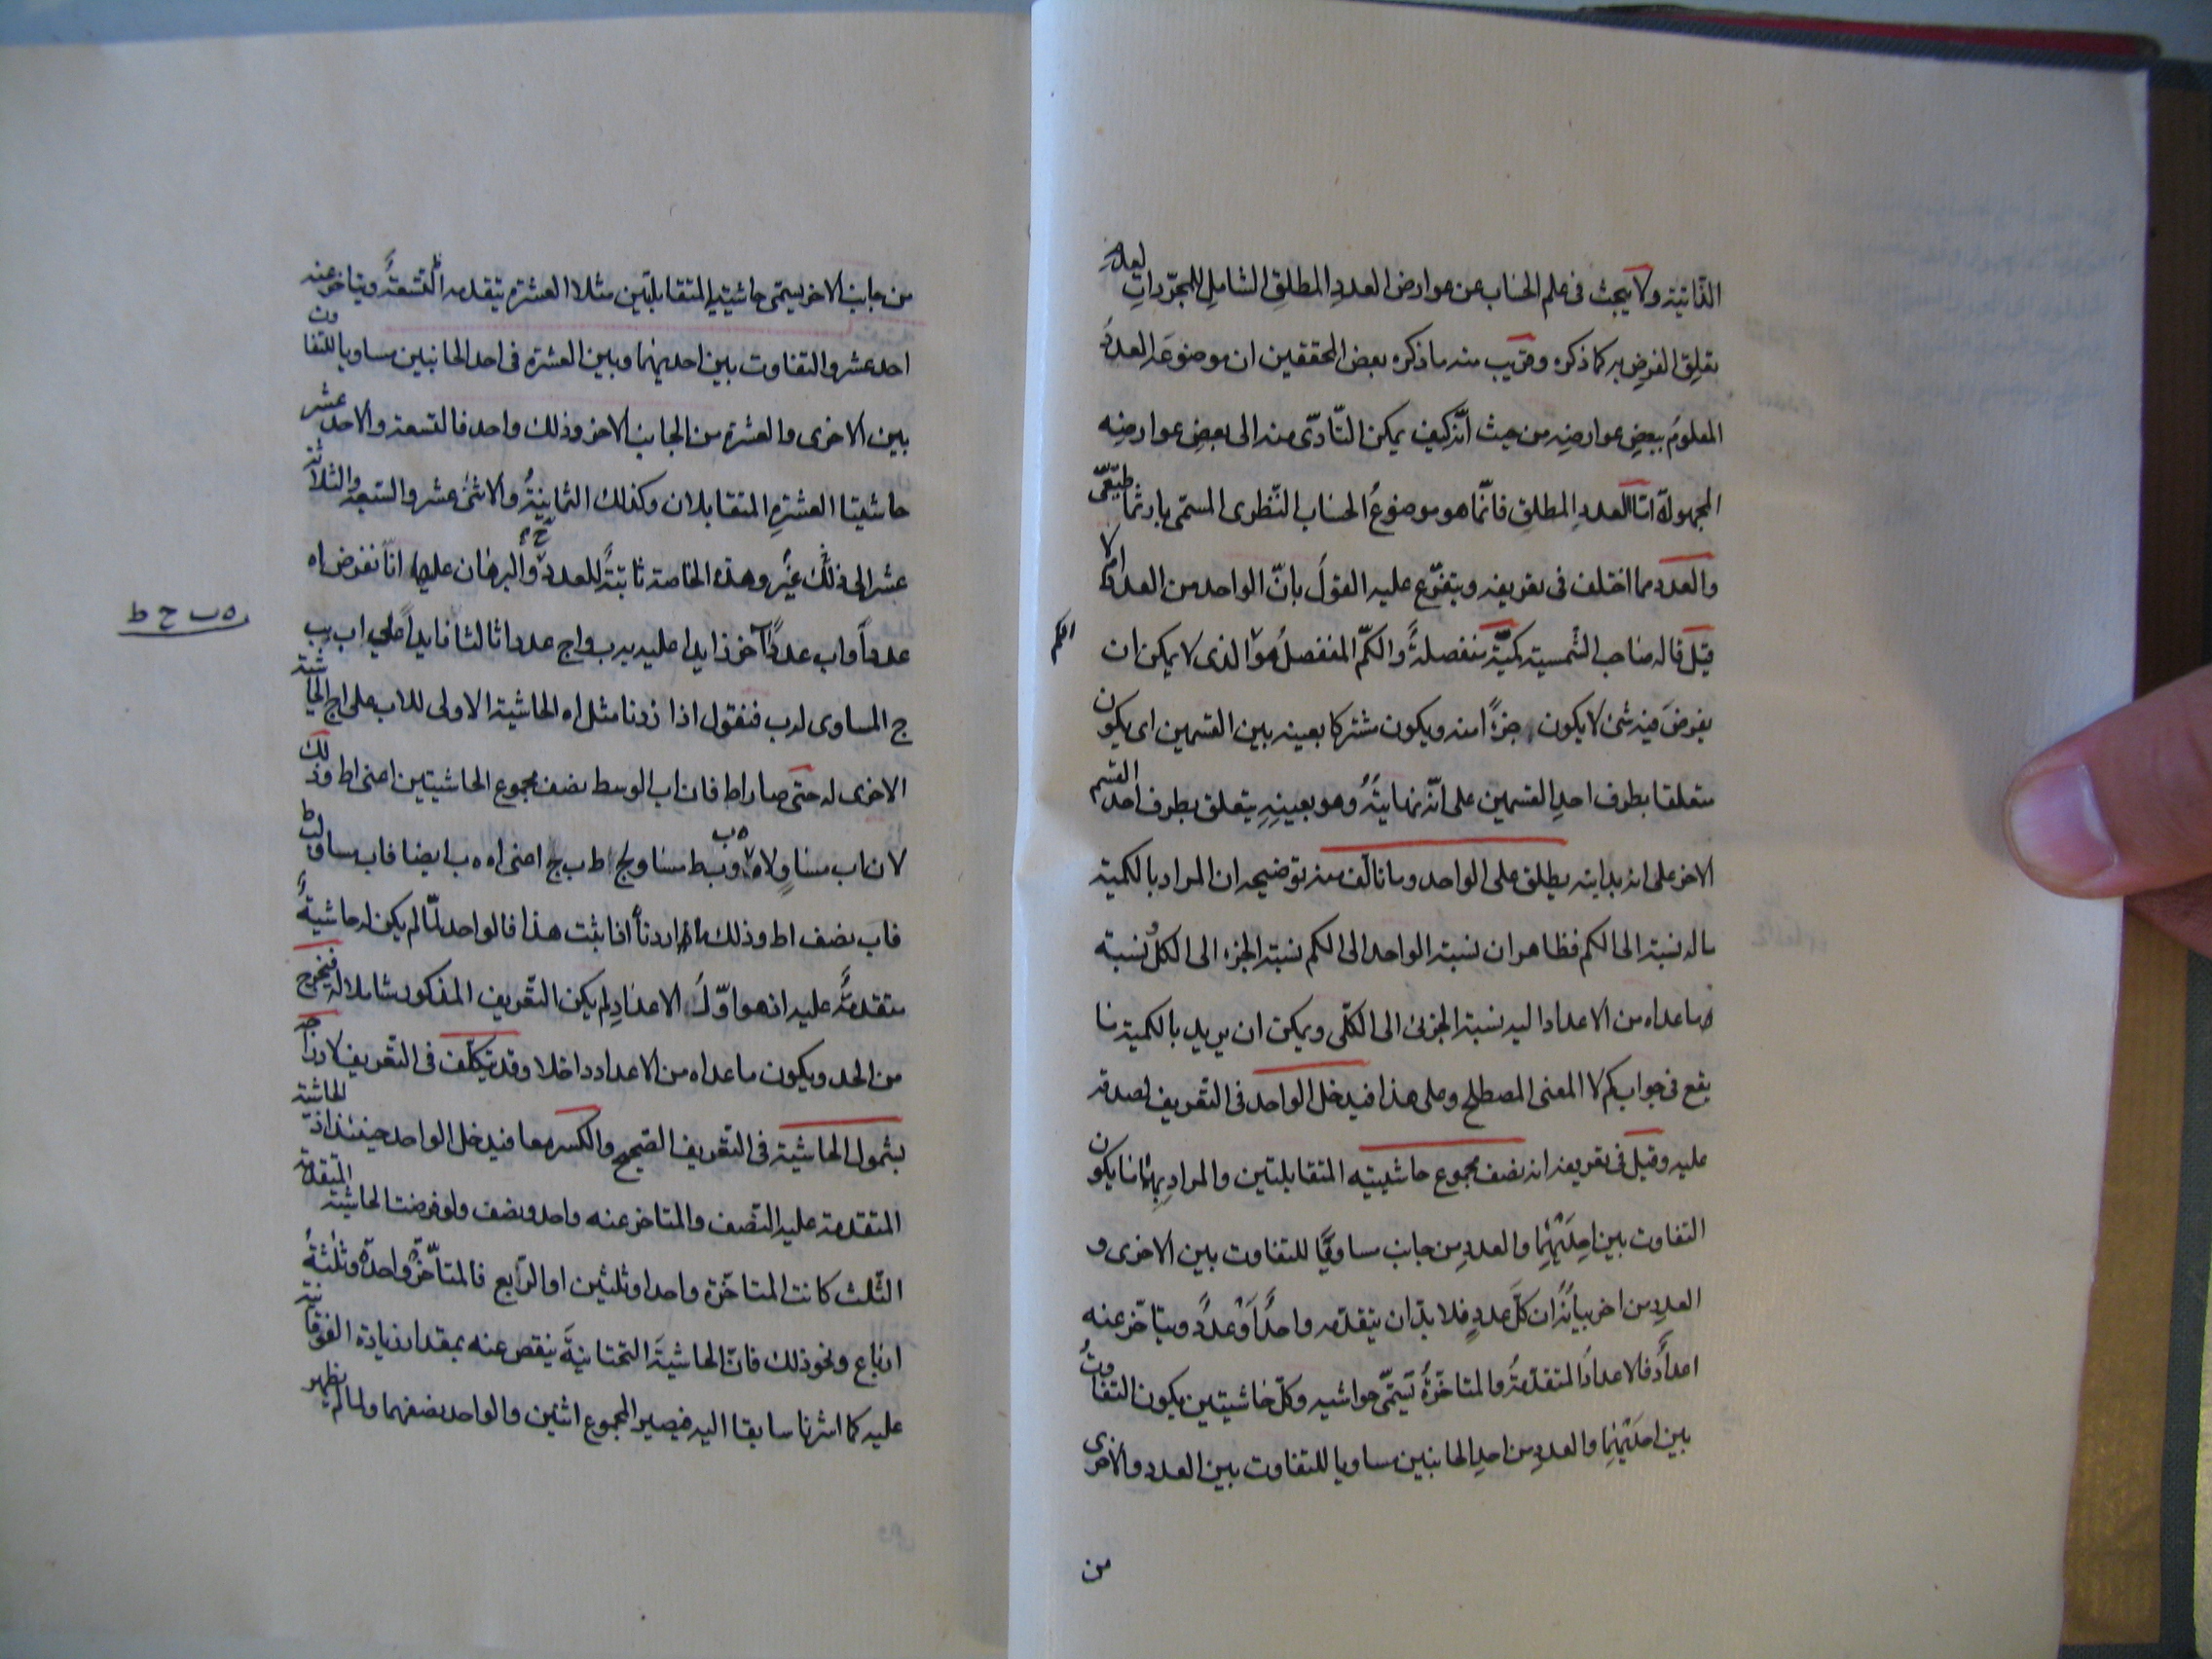 الذّاتيّة ولا يبحث فى علم الحساب عن عوارض العددِ المطلقِ الشاملِ للمجرّداتِ لعدمِ
تعلق الفرضِ به كما ذكره وقريب منه ما ذكره بعض المحققين ان موضوعَه العددُ
المعلومُ ببعضِ عوارضِه من حيث انّه كيف يمكن التّأدّى منه الى بعضِ عوارضِه
المجهولة امّا العدد المطلقِ فانّما هو موضوعُ الحساب النّظرى المسمى بارثماطيقى
والعدد مما اختلف فى تعريفه ويتفرّع عليه القولُ بانّ الواحد من العدد ام لا
قيل قاله صاحب الشّمسيّه كميّة منفصلةٌ والكمّ المنفصلُ هو الذى لا يمكن ان
الكم
يفرضَ فيه شئ لا يكون جزءًا منه ويكون مشتركا بعينه بين القسمين اى يكون
متعلقا بطرف احدِ القسمين على انّه نهايتُه وهو بعينِه يتعلق بطرف احد القسم
الاخر على انه بدايته يطلق على الواحد وما تألّف منه توضيحه ان المراد بالكمية
ما له نسبة الى الكم فظاهر ان نسبة الواحد الى الكم نسبة الجزء الى الكل ونسبة
ما عداه من الاعداد اليه نسبة الجزئى الى الكلّى ويمكن ان يريد بالكمية ما
يقع فى جواب كم لا المعنى المصطلح وعلى هذا فيدخل الواحد فى التعريف لصدقه
عليه وقيل فى تعريفه انه نصف مجموع حاشيتيه المتقابلتين والمراد بهما ما يكون
التفاوت بين احدَيهِما والعددِ من جانب مساويًا للتفاوت بين الاخرى و
العددِ من اخر بيانُه ان كلَّ عددٍ فلا بدّ ان يتقدّمه واحدٌ او عددٌ ويتأخّر عنه
اعدادٌ فالاعدادُ المتقدّمةُ والمتاخّرةُ تسمّى حواشيه وكلّ حاشيتين يكون التفاوتُ
بين احدَيهِما والعددِ من احدِ الجانبين مساويا للتفاوت بين العدد والاخرى
من
من جانب الاخر يسمّى حاشيتيه المتقابلتين مثلا العشرة يتقدمه التّسعةُ ويتاخر عنه
احد عشر والتفاوت بين احديهما وبين العشرة فى احد الجانبين مساويا للتفاوت
بين الاخرى والعشرة من الجانب الاخر وذلك واحد فالتسعة والاحد عشر
حاشيتا العشرةِ المتقابلان وكذلك الثمانيةُ والاثنى عشر والسبعة والثلاثة
عشر الى ذلك غير وهذه الخاصة ثابتةٌ للعدد والبرهان عليها انّا نفرض اه
عدداً واب عدداً آخر زايدا عليه به ب واج عددا ثالثا زايداً على اب بب
ه ب ج ط
ج المساوى له ب فنقول اذا زدنا مثل اه الحاشية الاولى للاب على اج الحاشية
الاخرى له حتى صار اط فان اب الوسط نصف مجموع الحاشيتين اعنى اط وذلك
لان اب مساوٍ لاه ه ب وب ط مساو لج ط ب ج اعنى اه ه ب ايضا فاب مساو لب ط
فاب نصف اط وذلك ما اردنا اذا ثبت هذا فالواحد لمّا لم يكن له حاشيةٌ
متقدمةٌ عليه اذ هو اوّلُ الاعدادِ لم يكن التّعريف المذكور شاملا له فيخرج
من الحد ويكون ما عداه من الاعداد داخلا وقد يتكلّف فى التّعريف لادراجه
بشمول الحاشية فى التّعريف الصّحيح والكسر معا فيدخل الواحد حينئذ اذ الحاشية
المتقدمة عليه النّصف والمتاخر عنه واحد ونصف ولو فرضت الحاشية المتقدمة
الثّلث كانت المتاخّرة واحدا وثلثين او الرّابع فالمتاخّرة واحدة وثلثةُ
ارباع ونحو ذلك فانّ الحاشيةَ التحتانيةَ ينقص عنه بمقدار زيادة الفوقانية
عليه كما اشرنا سابقا اليه فيصير المجموع اثنين والواحد نصفهما ولما لم يظهر